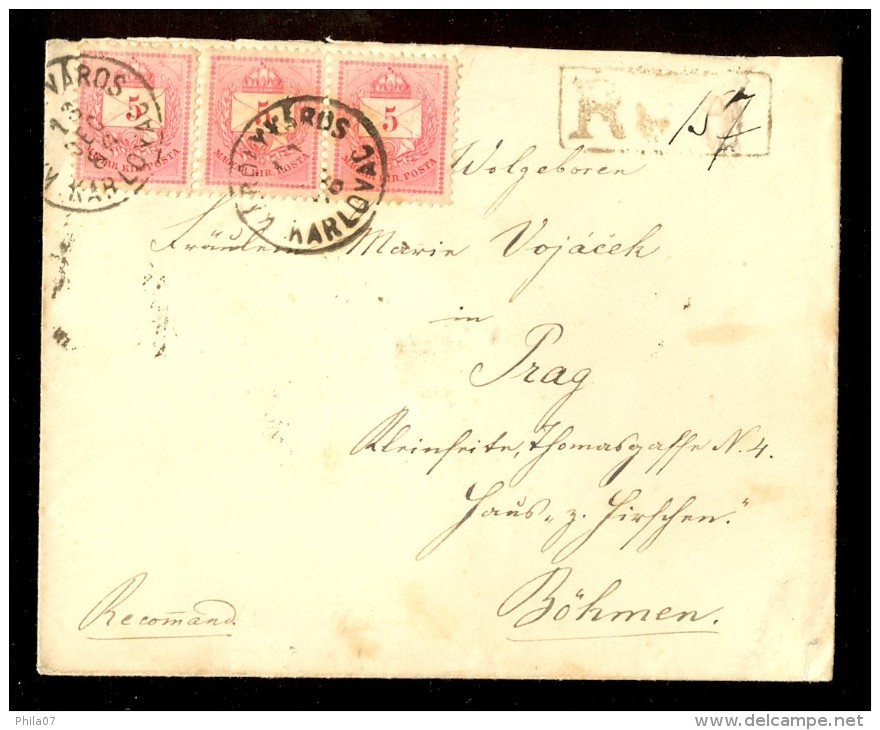 5 5 5
MAGYAR KIR. POSTA MAGYAR KIR. POSTA MAGYAR KIR. POSTA
KÁROLYVÁROS KARLOVAC
KÁROLYVÁROS KARLOVAC
R 157
Wolgeboren
Fräulein Marie Vojáček
in
Prag
Kleinseite, Thomasgasse N. 4.
Haus „z. Hirschen."
Böhmen.
Recom̄and.
Phila07
www.delcampe.net